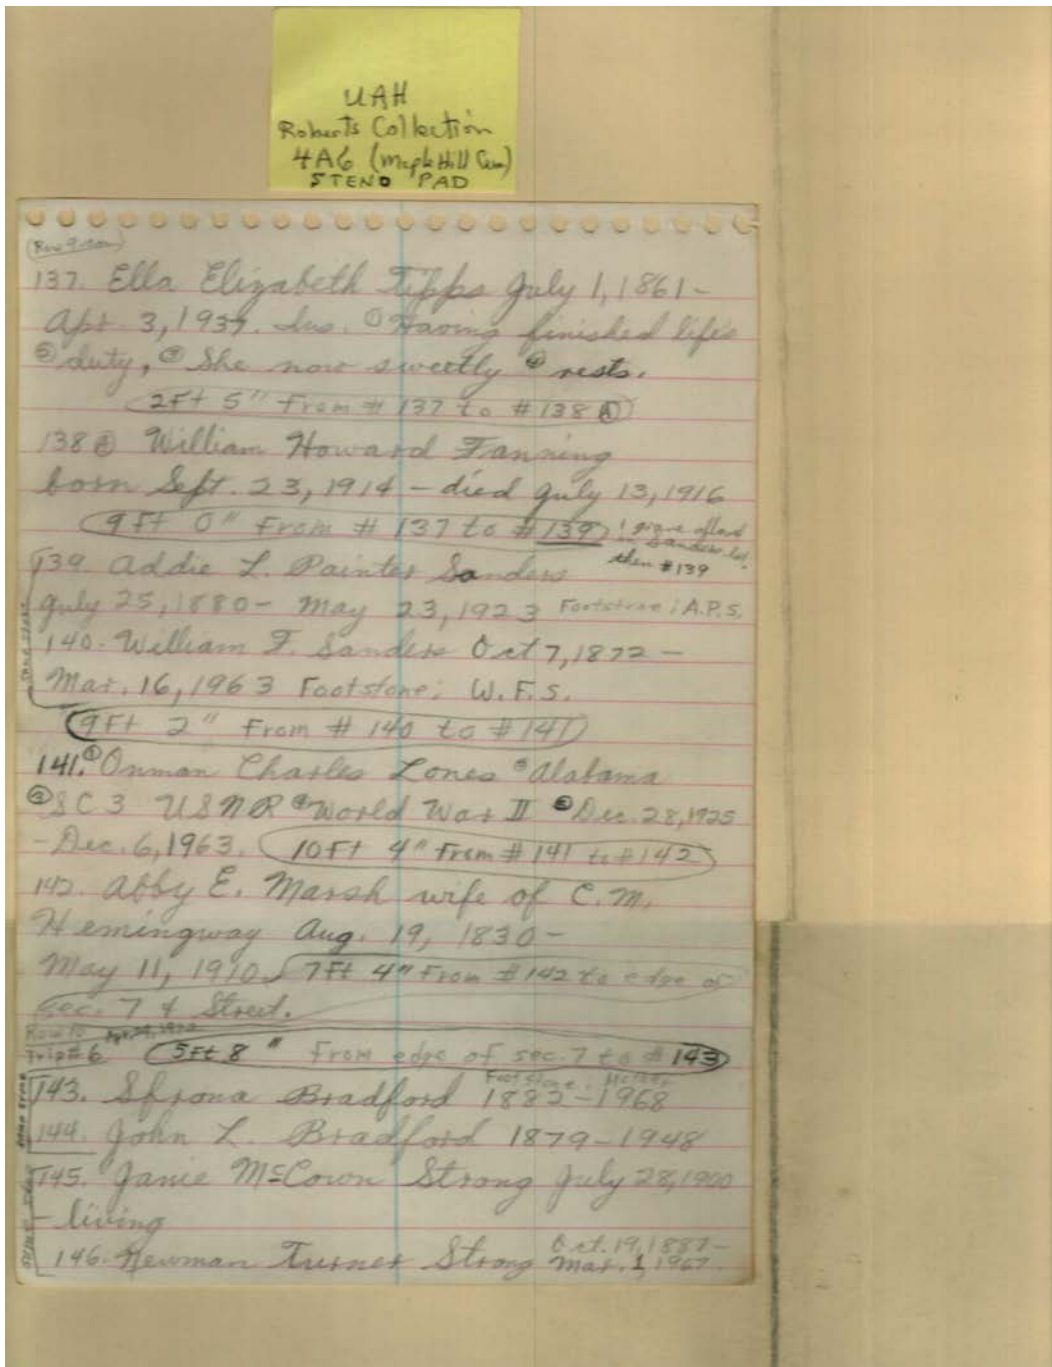 UAH
Roberts Collection
4A6 (Maple Hill Cem)
STENO PAD
(Row 9
137. Ella Elizabeth Tipps July 1, 1861-
Apr. 3, 1937. Ins. ① Having finished life's
② duty, ③ She now sweetly ④ rests.
2Ft 5" From # 137 to # 138
138 William Howard Fanning
born Sept. 23, 1914 - died July 13, 1916
9Ft 0" From # 137 to #139 1 grave
in Sanders lot,
then #139
139. Addie L. Painter Sanders
July 25, 1880- May 23, 1923 Footstone: A.P.S.
140. William F. Sanders Oct 7, 1872 -
Mar. 16, 1963 Footstone: W.F.S.
9Ft 2" From # 140 to #141
141. ① Onman Charles Lones ② Alabama
③ SC3 USNR ④ World War II ⑤ Dec. 28, 1925
- Dec. 6, 1963. 10Ft 4" From # 141 to #142
142. Abby E. Marsh wife of C.M.
Hemingway Aug. 19, 1830-
May 11, 1910. 7Ft 4" From #142 to edge of
sec. 7 & Street.
Row 10
Trip #6 5Ft 8" From edge of sec. 7 to # 143
Footstone: Mother
143. Sfrona Bradford 1882-1968
144. John L. Bradford 1879-1948
145. Janie McCown Strong July 28, 1900
- living
146. Newman Turner Strong Oct. 19, 1887-
Mar. 1, 1967.